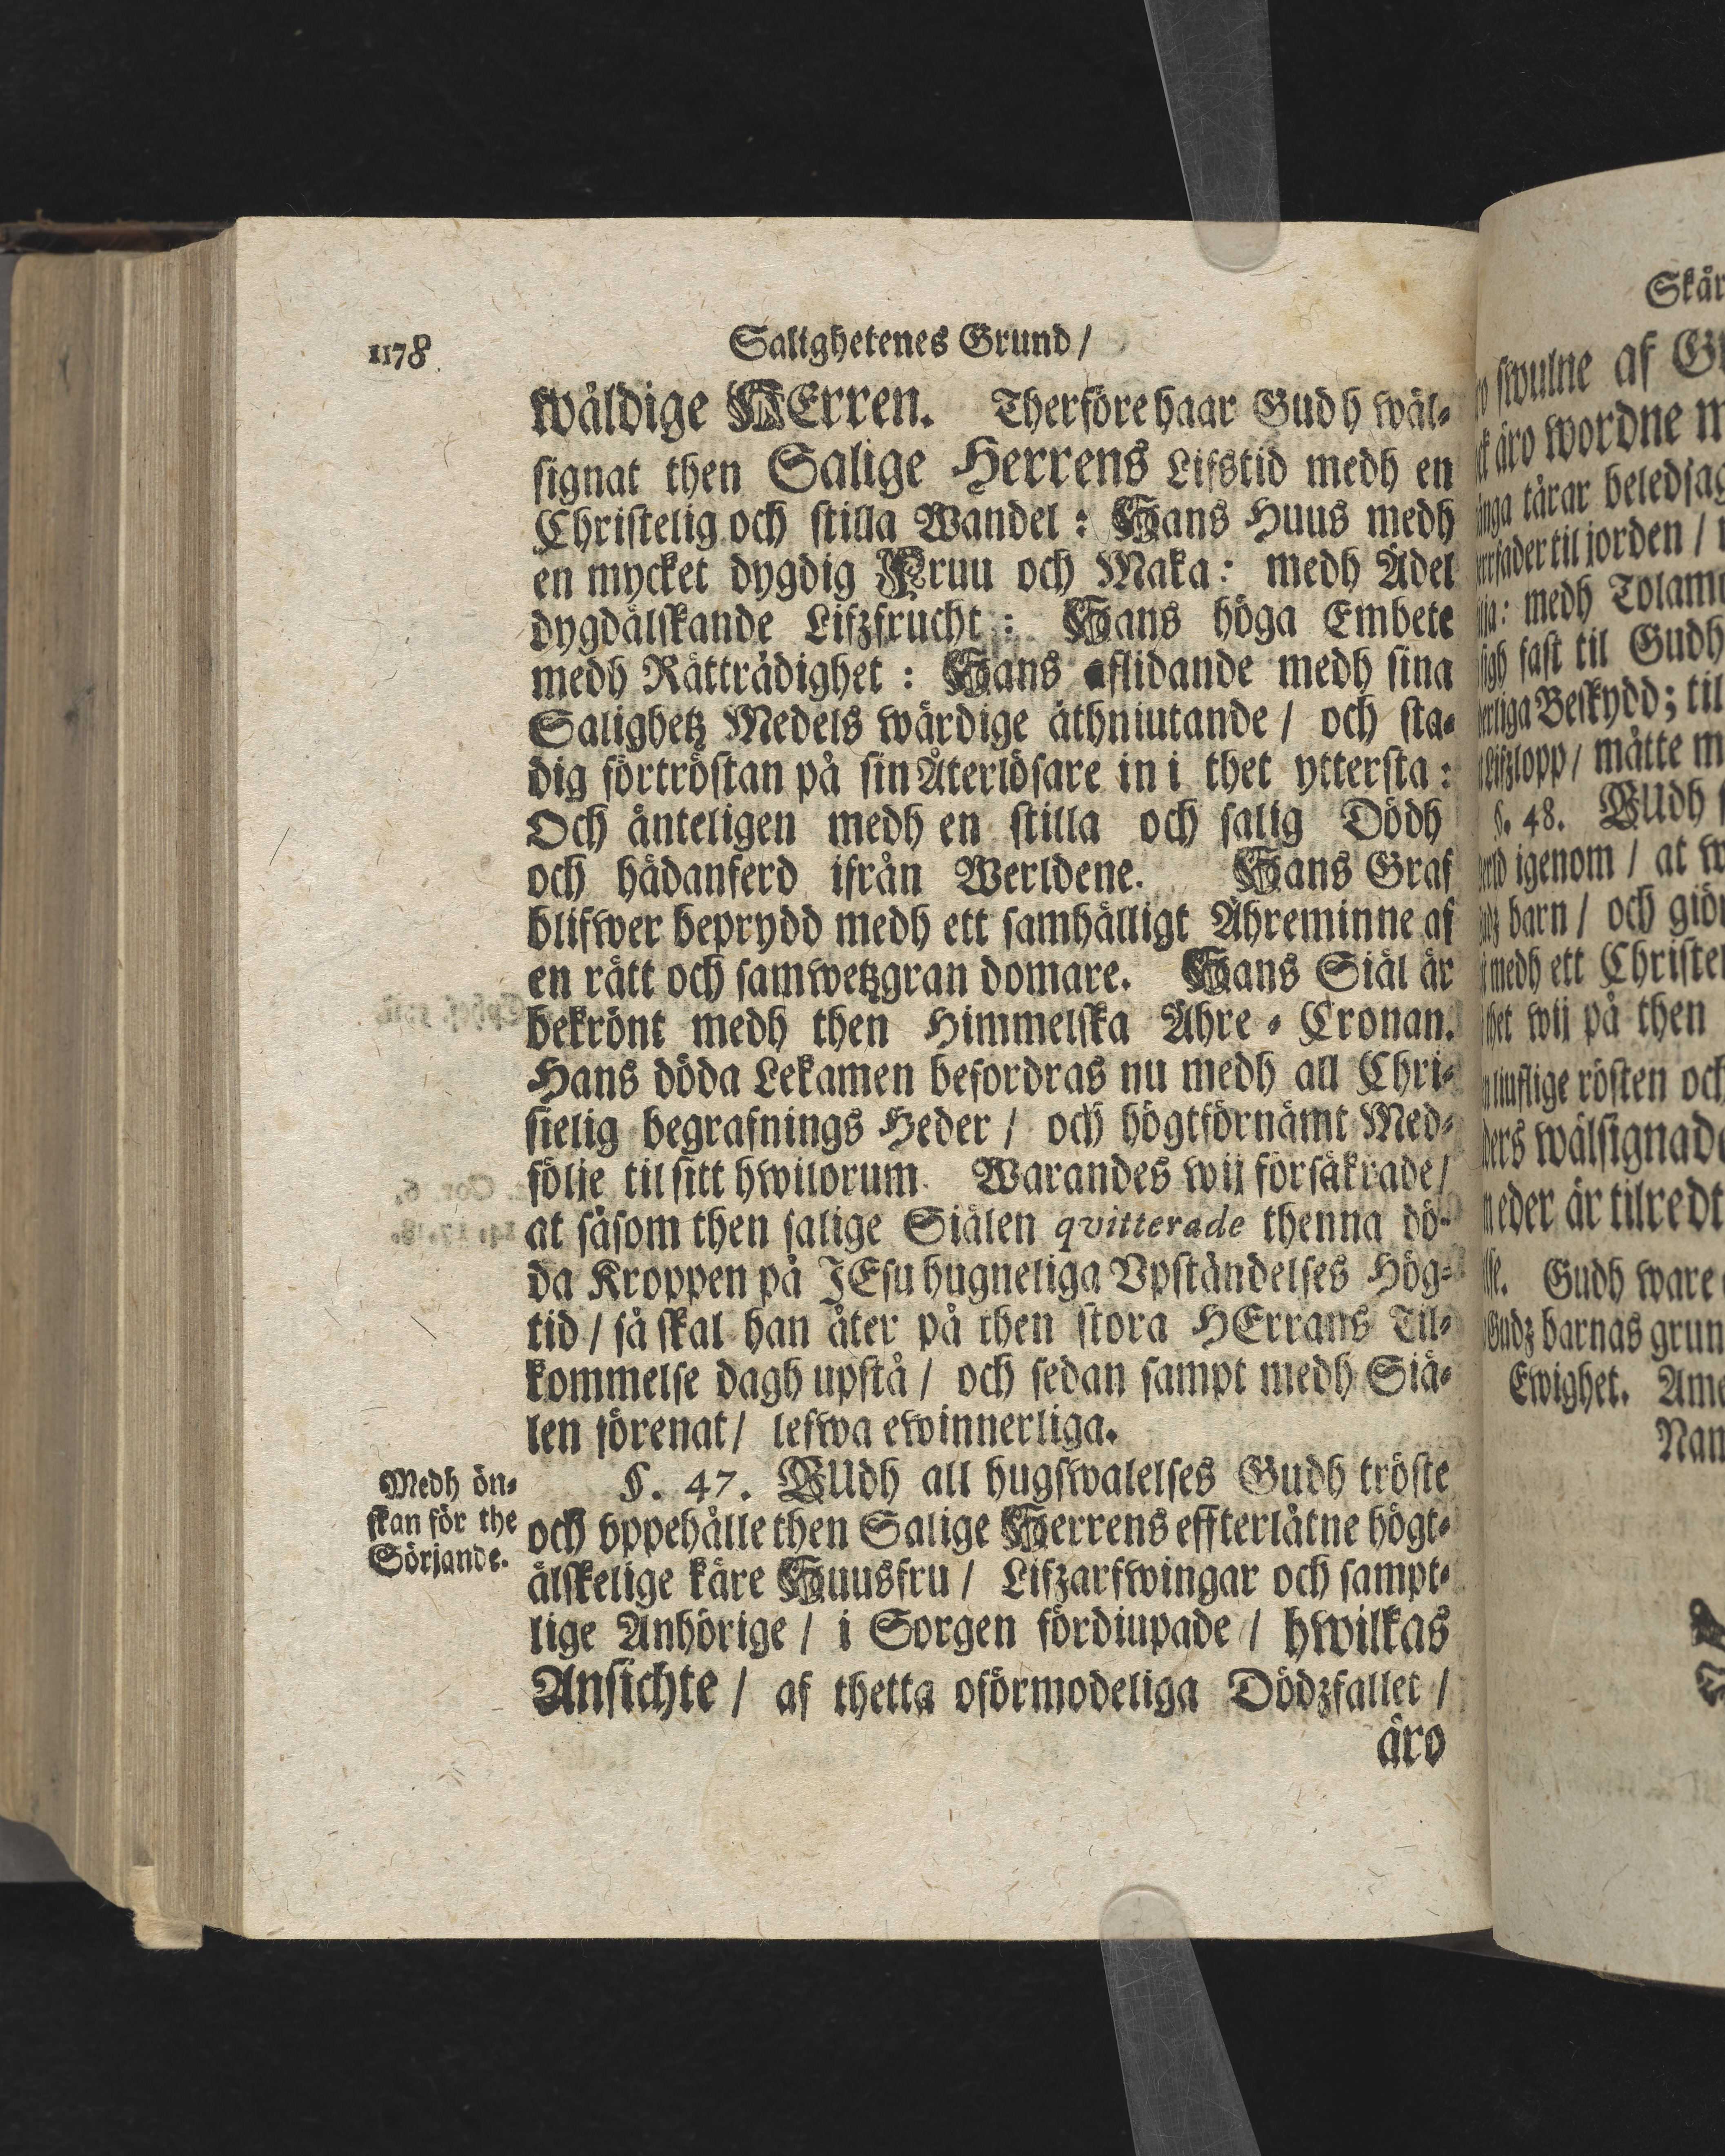 1178
Salighetenes Grund /
wäldige HErren. Therföre haar Gudh wäl-
signat then Salige Herrens Lifstid medh en
Christelig och stilla Wandel: Hans Huus medh
en mycket dygdig Fruu och Maka: medh Ädel
dygdälskande Lifzfrucht: Hans höga Embete
medh Rättrådighet: Hans aflidande medh sina
Salighetz Medels wärdige åthniutande / och sta-
dig förtröstan på sin Återlösare in i thet yttersta:
Och änteligen medh en stilla och salig Dödh
och hädanferd ifrån Werldene. Hans Graf
blifwer beprydd medh ett samhälligt Ähreminne af
en rätt och samwetzgran domare. Hans Siäl är
bekrönt medh then Himmelska Ähre-Cronan.
Hans döda Lekamen befordras nu medh all Chri-
stelig begrafnings Heder / och högtförnämt Med-
följe til sitt hwilorum. Warandes wij försäkrade /
at såsom then salige Siälen qvitterade thenna dö-
da Kroppen på JEsu hugneliga Vpståndelses Hög-
tid / så skal han åter på then stora HErrans Til-
kommelse dagh upstå / och sedan sampt medh Siä-
len förenat / lefwa ewinnerliga.
Medh ön-
skan för the
Sörjande.
§. 47. GUdh all hugswalelses Gudh tröste
och vppehålle then Salige Herrens effterlåtne högt-
älskelige käre Huusfru / Lifzarfwingar och sampt-
lige Anhörige / i Sorgen fördiupade / hwilkas
Ansichte / af thetta oförmodeliga Dödzfallet /
äro
swulne af
äro wordne
tårar
til jorden /
medh
fast til Gudh
Beskydd; til
måtte
§. 48. GUdh
igenom / at
barn / och
medh ett
wij på then
rösten och
eder är tilredt
Gudh ware
barnas
Ewighet.